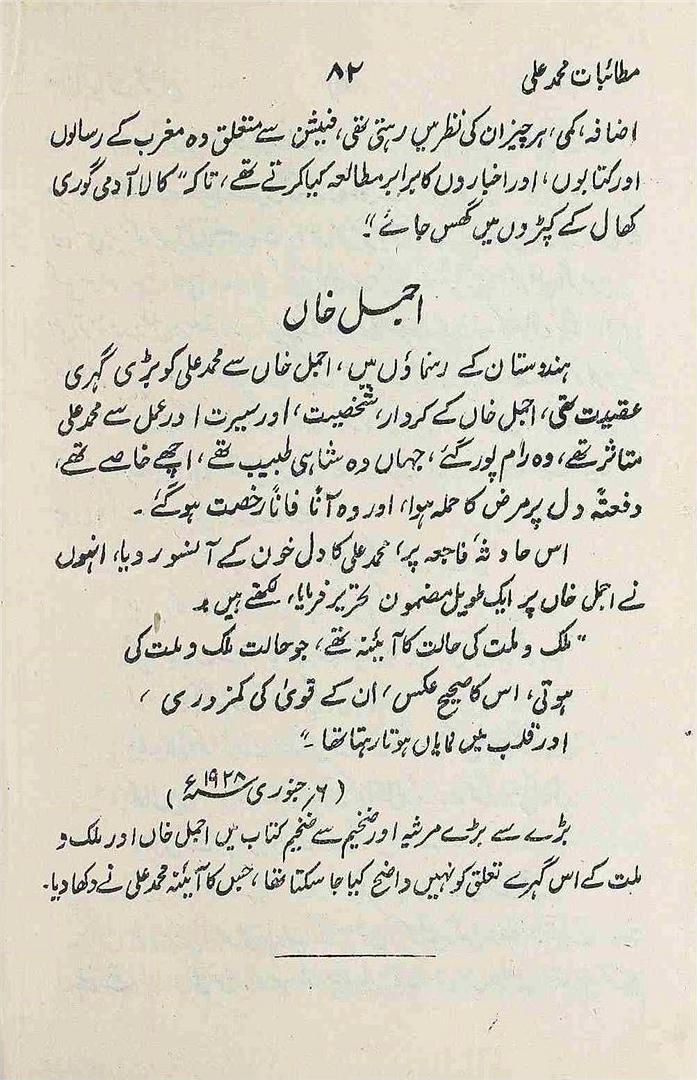 مطائبات محمد علی
۸۲
اضافہ، کمی، ہر چیز ان کی نظر میں رہتی تھی، فیشن سے متعلق وہ مغرب کے رسالوں
اور کتابوں، اور اخباروں کا برابر مطالعہ کیا کرتے تھے، تاکہ "کالا آدمی گوری
کھال کے کپڑوں میں گھس جائے"!
اجمل خاں
ہندوستان کے رہنماؤں میں، اجمل خاں سے محمد علی کو بڑی گہری
عقیدت تھی، اجمل خاں کے کردار، شخصیت، اور سیرت اور عمل سے محمد علی
متاثر تھے، وہ رام پور گئے، جہاں وہ شاہی طبیب تھے، اچھے خاصے تھے،
دفعتہً دل پر مرض کا حملہ ہوا، اور وہ آناً فاناً رخصت ہو گئے۔
اس حادثۂ فاجعہ پر، محمد علی کا دل خون کے آنسو رویا، انہوں
نے اجمل خاں پر ایک طویل مضمون تحریر فرمایا، لکھتے ہیں :۔
"ملک و ملت کی حالت کا آئینہ تھے، جو حالت ملک و ملت کی
ہوتی، اس کا صحیح عکس، ان کے قویٰ کی کمزوری،
اور قلب میں نمایاں ہوتا رہتا تھا۔"
(۶؍ جنوری ۱۹۲۸ء)
بڑے سے بڑے مرثیہ اور ضخیم سے ضخیم کتاب میں اجمل خاں اور ملک و
ملت کے اس گہرے تعلق کو نہیں واضح کیا جا سکتا تھا، جس کا آئینہ محمد علی نے دکھا دیا۔